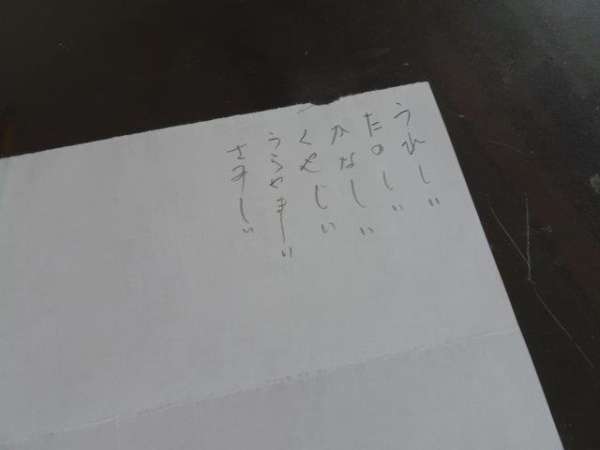 うれしい
たのしい
かなしい
くやしい
うらやましい
さみしい